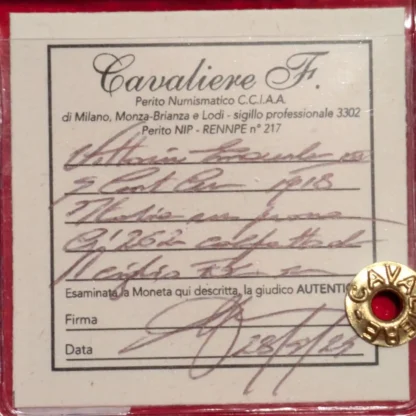 Cavaliere F.
Perito Numismatico C.C.I.A.A.
di Milano, Monza-Brianza e Lodi - sigillo professionale 3302
Perito NIP - RENNPE n° 217
Vittorio Emanuele III
5 Cent 1918
Italia su prora
Esaminata la Moneta qui descritta, la giudico AUTENTIC
Firma
Data 28/5/25
CAVA